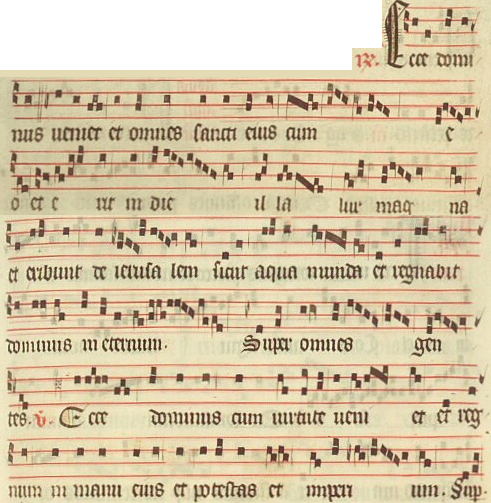 R. Ecce domi
nus veniet et omnes sancti eius cum e
o et e rit in die il la lux mag na
et exibunt de ierusa lem sicut aqua munda et regnabit
dominus in eternum. Super omnes gen
tes. V. Ecce dominus cum virtute veni et et reg
num in manu eius et potestas et imperi um. Sup.